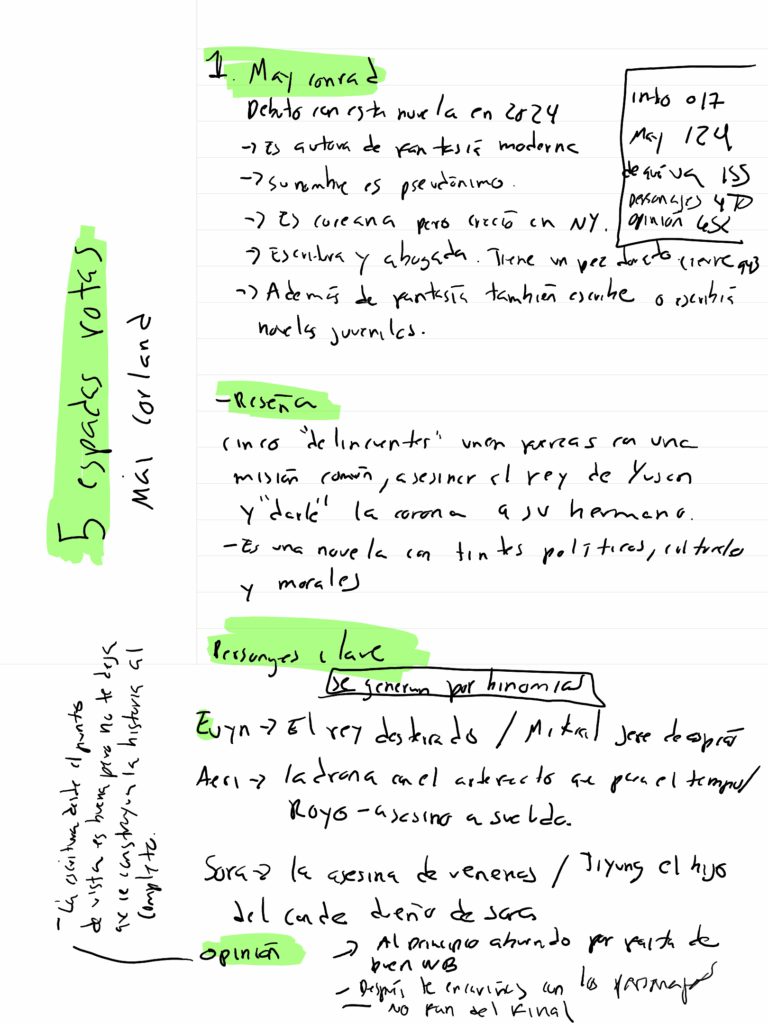 5 espadas rotas
Mai corland
1. May conrad
Debuto con esta novela en 2024
→ Es autora de fantasiá moderna
→ su nombre es pseudónimo.
→ Es coreana pero creció en NY.
→ Escritora y abogada. Tiene un pez dorado cierre 943
→ Además de fantasía también escribe o escribía
novelas juveniles.
into 017
May 124
de qué va 155
personajes 470
opinión 652
- Reseña
cinco "delincuentes" unen fuerzas en una
misión común, asesinar el rey de Yusan
y "darle" la corona a su hermano.
- Es una novela con tintes políticos, culturales
y morales
Personajes clave
se generan por binomios
Euyn → El rey desterrado / Mikail jefe de espías
Aeri → ladrona con el artefacto que para el tiempo/
Royo - asesino a sueldo.
Sora → la asesina de venenos / Tiyung el hijo
del conde dueño de sora
opinión
→ Al principio aburrido por falta de
buen WB
- Después te encariñas con los personajes
- No fan del final
- La escritura desde el puntos
de vista es buena pero no te deja
que se construya la historia al
completo.